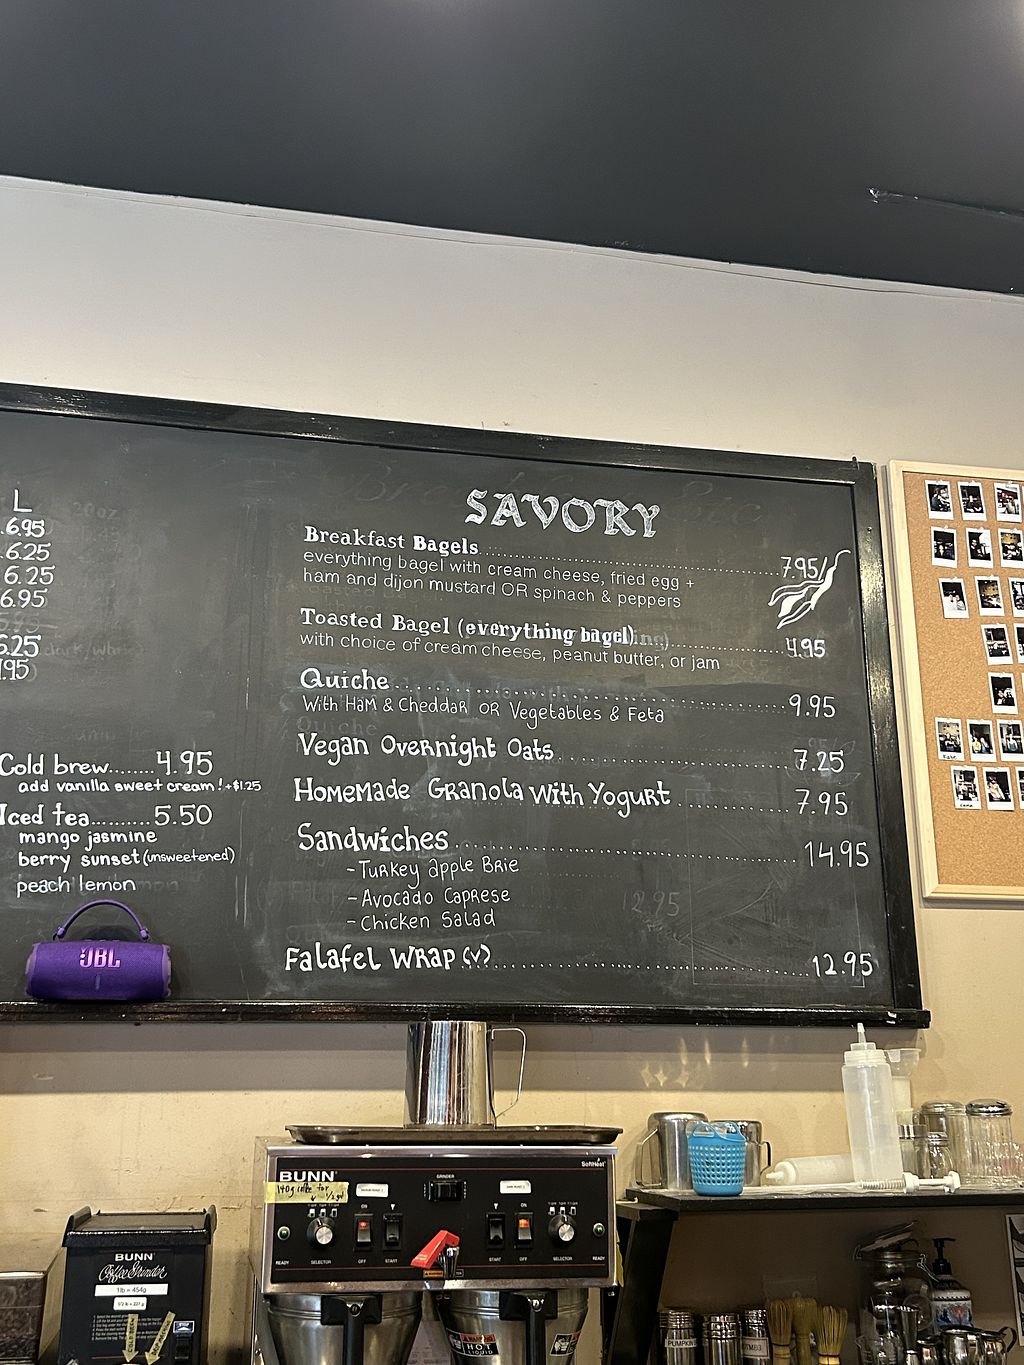 L
6.95
6.25
6.25
6.95
Cold brew........4.95
add vanilla sweet cream! +$1.25
Iced tea..........5.50
mango jasmine
berry sunset (unsweetened)
peach lemon
SAVORY
Breakfast Bagels 7.95
everything bagel with cream cheese, fried egg +
ham and dijon mustard OR spinach & peppers
Toasted Bagel (everything bagel) 4.95
with choice of cream cheese, peanut butter, or jam
Quiche 9.95
With Ham & Cheddar OR Vegetables & Feta
Vegan Overnight Oats 7.25
Homemade Granola With Yogurt 7.95
Sandwiches 14.95
- Turkey apple Brie
- Avocado Caprese
- Chicken Salad
12.95
Falafel Wrap (v) 12.95
JBL
BUNN
SoftHeat
GRINDER
ON
ON
READY
SELECTOR
OFF
START
START
OFF
SELECTOR
READY
BUNN
Coffee Grinder
1lb = 454g
1/2 lb = 227 g
WARNING
HOT
LIQUID